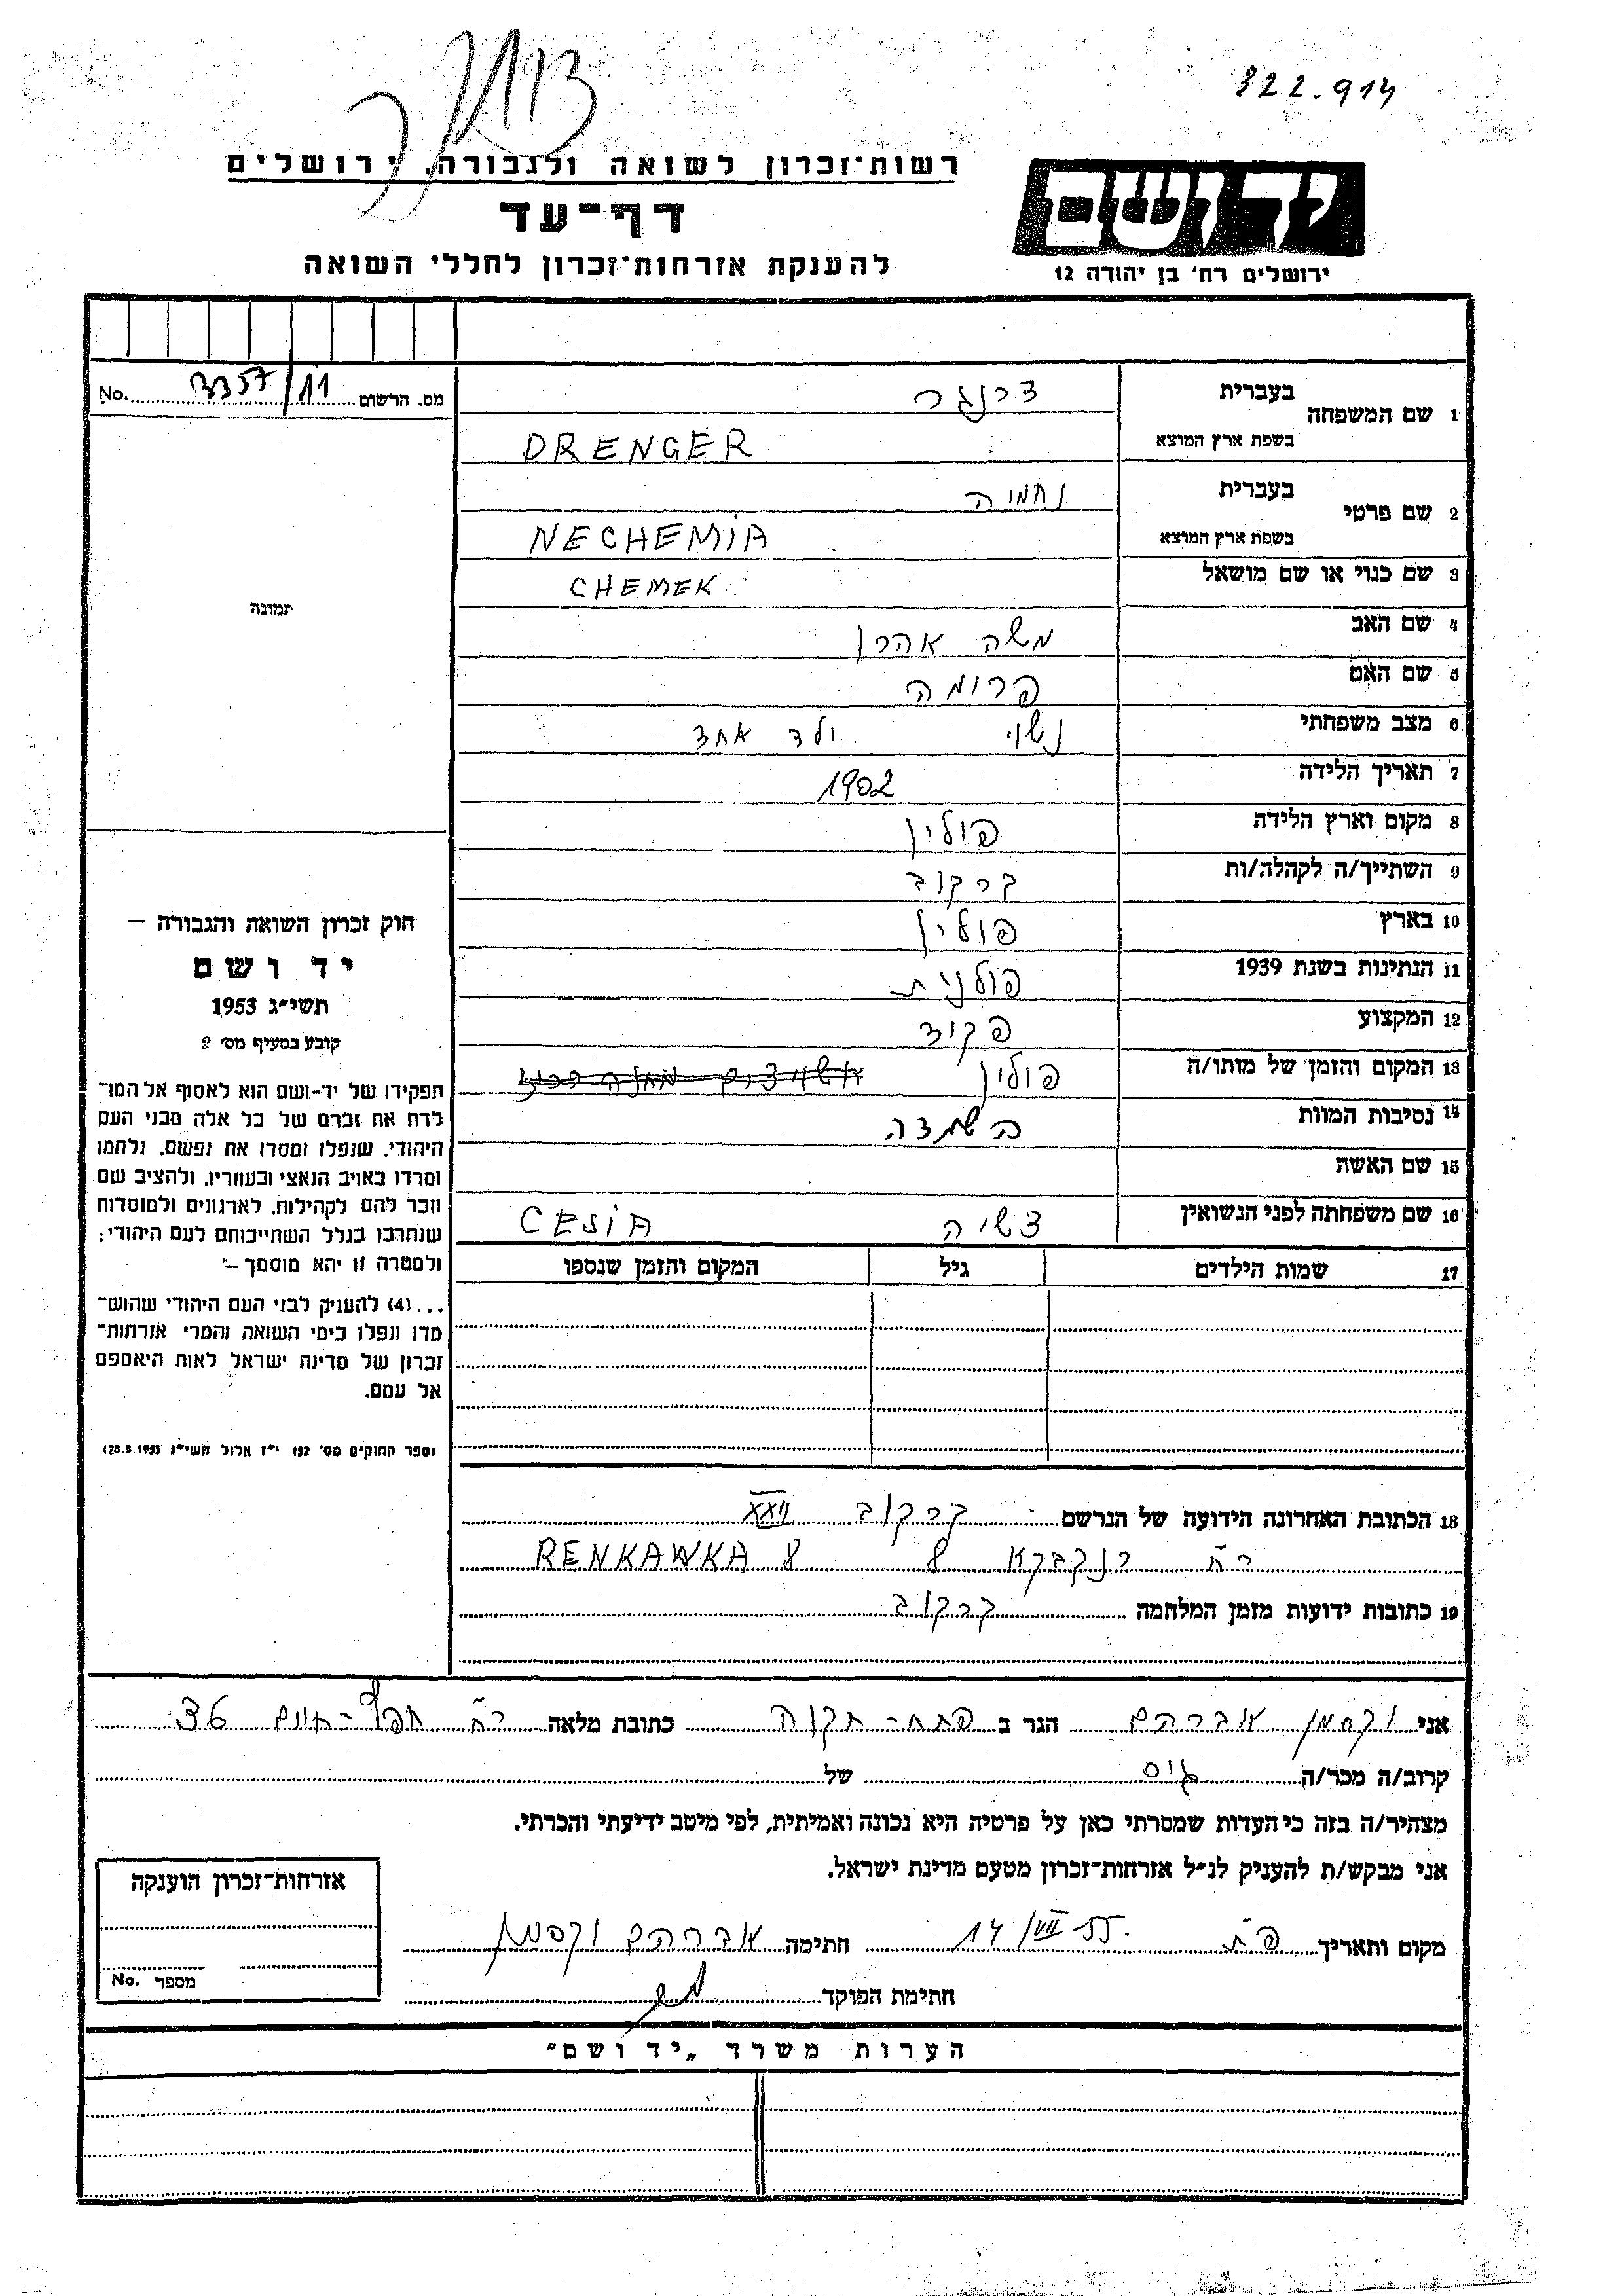 322.914
יד ושם
ירושלים רח' בן יהודה 12
רשות־זכרון לשואה ולגבורה, ירושלים
דף־עד
להענקת אזרחות־זכרון לחללי השואה
מס. הרשום 3357/11 No.
תמונה
1 שם המשפחה בעברית דרנגר
בשפת ארץ המוצא DRENGER
2 שם פרטי בעברית נחמיה
בשפת ארץ המוצא NECHEMIA
3 שם כנוי או שם מושאל CHEMEK
4 שם האב משה אהרן
5 שם האם פרומה
6 מצב משפחתי נשוי ולד אחד
7 תאריך הלידה 1902
8 מקום וארץ הלידה פולין
9 השתייך/ה לקהלה/ות קרקוב
10 בארץ פולין
11 הנתינות בשנת 1939 פולנית
12 המקצוע פקיד
13 המקום והזמן של מותו/ה פולין
14 נסיבות המוות השמדה
15 שם האשה
16 שם משפחתה לפני הנשואין צשיה CESIA
17 שמות הילדים גיל המקום והזמן שנספו
חוק זכרון השואה והגבורה –
יד ושם
תשי״ג 1953
קובע בסעיף מס׳ 2
תפקידו של יד-ושם הוא לאסוף אל המו־
לדת את זכרם של כל אלה מבני העם
היהודי, שנפלו ומסרו את נפשם, נלחמו
ומרדו באויב הנאצי ובעוזריו, ולהציב שם
וזכר להם לקהילות, לארגונים ולמוסדות
שנחרבו בגלל השתייכותם לעם היהודי;
ולמטרה זו יהא מוסמך –
...(4) להעניק לבני העם היהודי שהוש־
מדו ונפלו בימי השואה והמרי אזרחות־
זכרון של מדינת ישראל לאות היאספם
אל עמם.
(ספר החוקים מס׳ 132 י״ז אלול תשי״ג 28.8.1953)
18 הכתובת האחרונה הידועה של הנרשם קרקוב XXII
רח רנקבקא 8 RENKAWKA 8
19 כתובות ידועות מזמן המלחמה קרקוב
אני וקסמן אברהם הגר ב פתח-תקוה כתובת מלאה רח חפץ-חיים 36
קרוב/ה מכר/ה גיס של
מצהיר/ה בזה כי העדות שמסרתי כאן על פרטיה היא נכונה ואמיתית, לפי מיטב ידיעתי והכרתי.
אני מבקש/ת להעניק לנ״ל אזרחות־זכרון מטעם מדינת ישראל.
מקום ותאריך פ״ת 14/VII 55. חתימה אברהם וקסמן
חתימת הפוקד
אזרחות־זכרון הוענקה
מספר No.
הערות משרד „יד ושם״